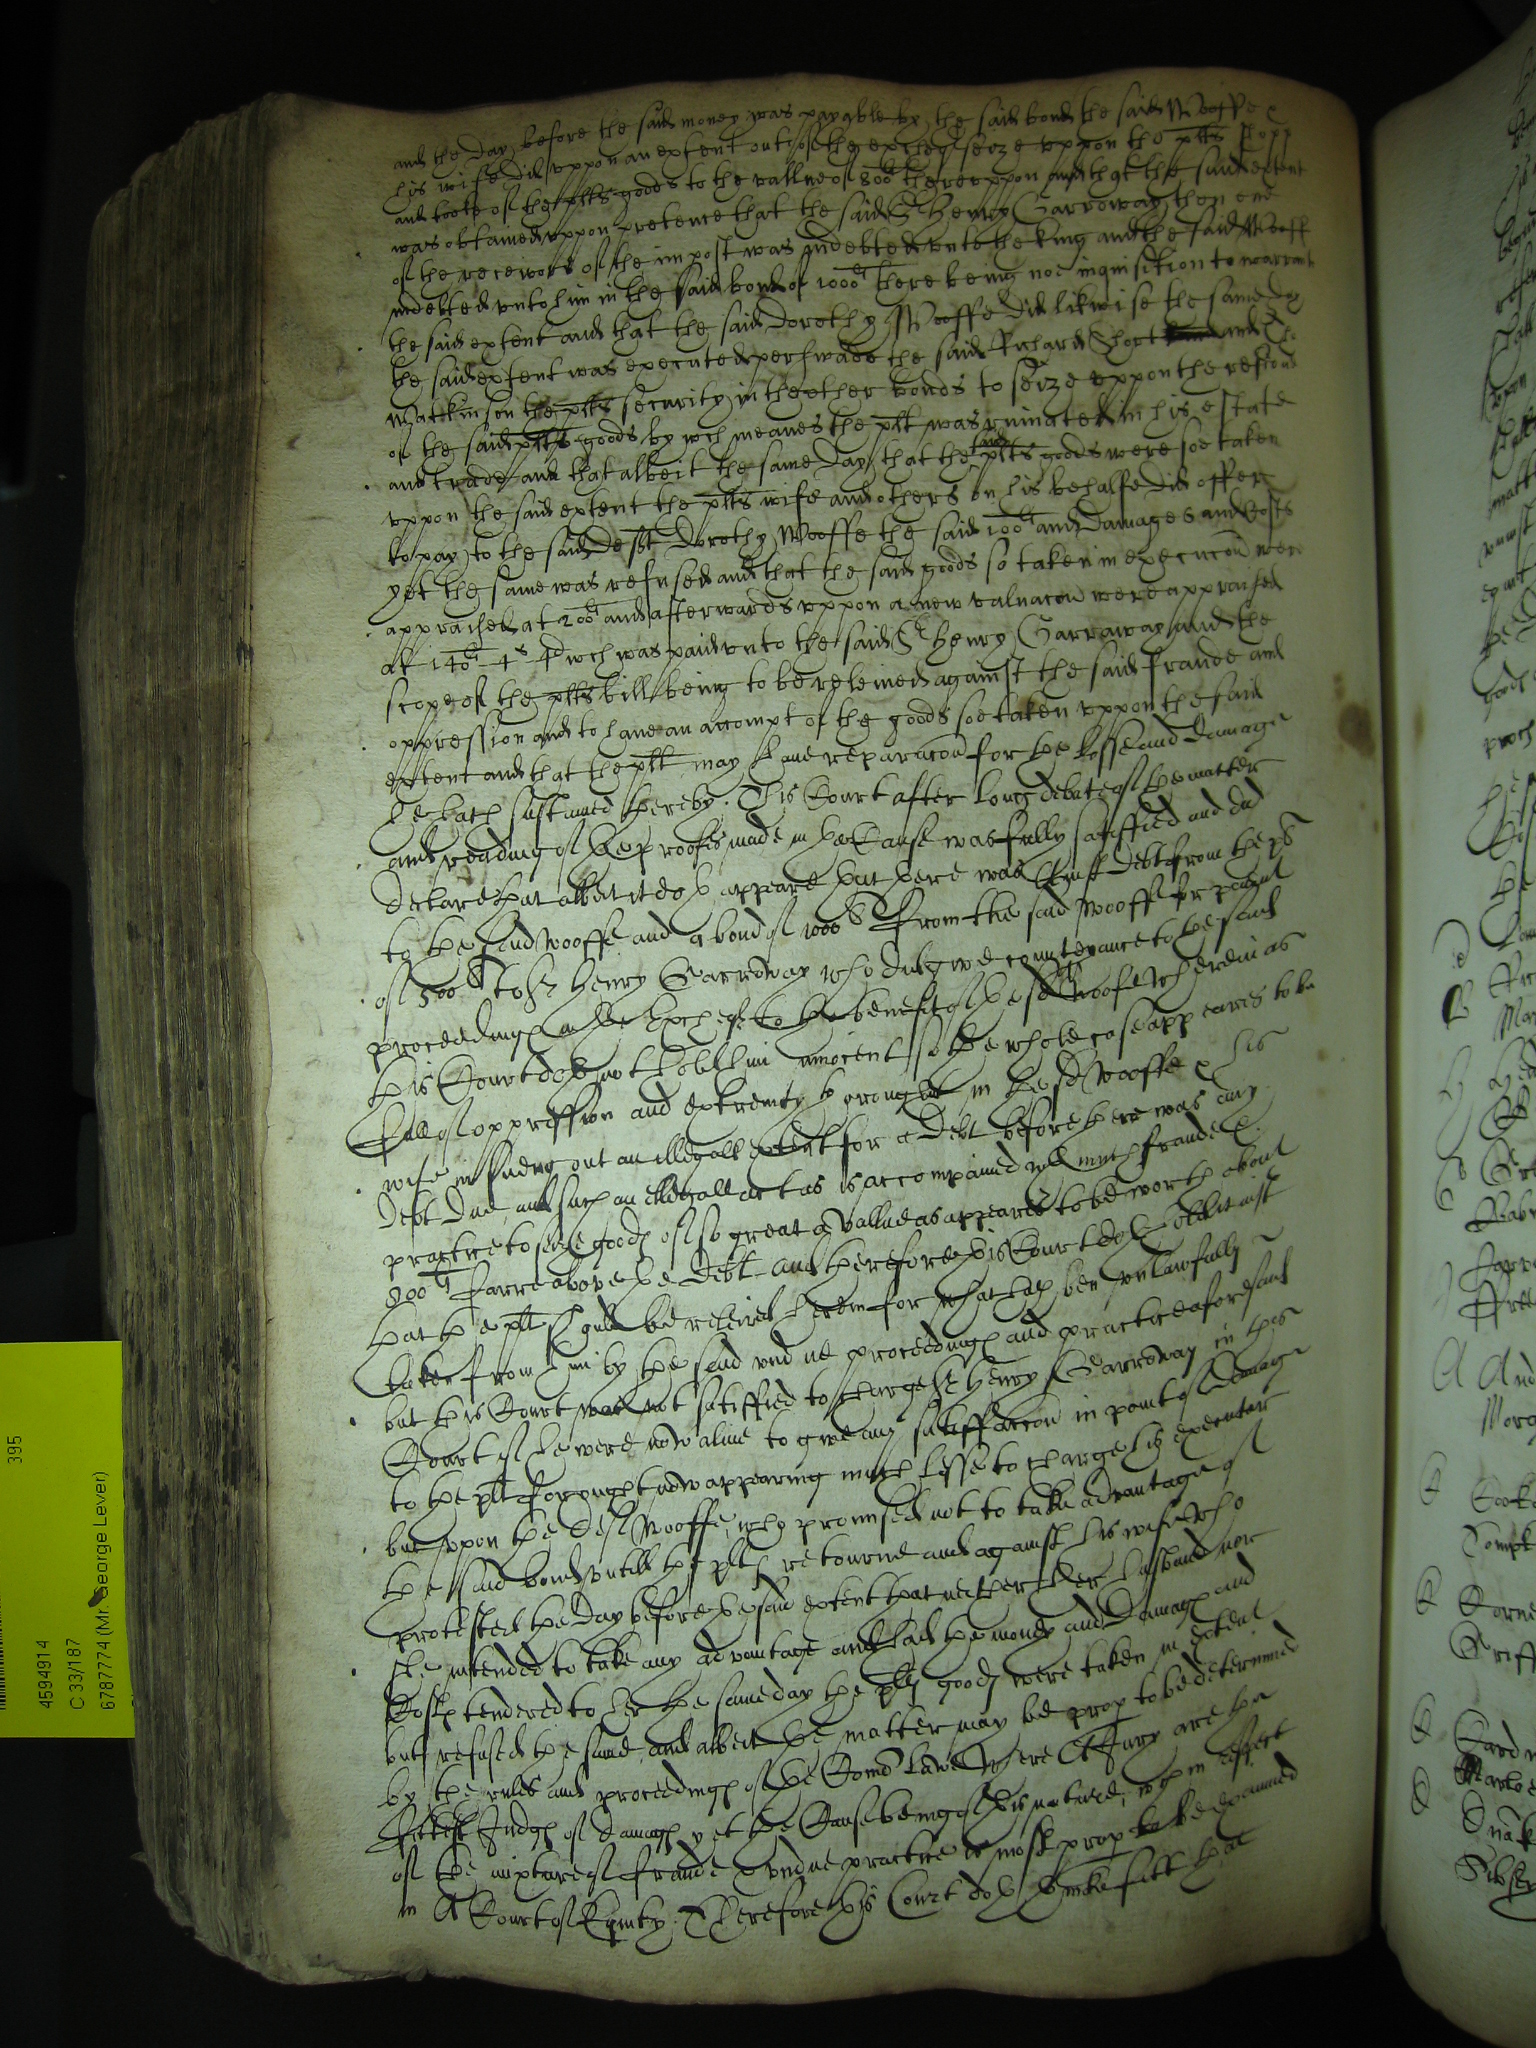 and the day before the said money was payable by the said bond the said Wooffe &
his wife did uppon an extent out of the excheqr seize uppon the plts shopp
and tooke of the plts goods to the vallue of 800li thereuppon and that the said extent
was obtained uppon pretence that the said Sr Henry Garroway then one
of the receivors of the impost was indebted unto the King and the said Wooff
indebted unto him in the said bond of 1000li there being noe inquisition to warrant
the said extent and that the said Dorothy Wooffe did likewise the same day
the said extent was executed perswade the said Richard Short and
Wattkinson the plts security in the other bonds to seize uppon the residue
of the said plts goods by wch meanes the plt was ruinated in his estate
and trade and that albeit the same day that the said plts goods were soe taken
uppon the said extent the plts wife and others on his behalfe did offer
to pay to the said deft Dorothy Wooffe the said 100li and damages and Costs
yet the same was refused and that the said goods so taken in execucon were
appraised at 200li and afterwards uppon a new valuacon were appraised
at 140li 4s 4d wch was paid unto the said Sr Henry Garraway and the
scope of the plts bill being to be releived against the said fraude and
oppression and to have an accompt of the goods soe taken uppon the said
extent and that the plt may have reparacon for the losse and damage
he hath sustained thereby. This Court after long debate of the matter
and reading of the proofes made in the Cause was fully satisfied and did
declare that albeit it doth appeare that there was a just debt from the plt
to the said Wooffe and a bond of 1000li from the said Wooffe for paymt
of 500li to Sr Henry Garroway who did give countenance to the said
proceedings in the Excheqr to the benefit of the sd Wooffe wherein as
this Court doth not hold him innocent so the whole case appeares to be
full of oppression and extremity & wrought in the sd Wooffe & his
wife in sueing out an illegall extent for a debt before there was any
debt due and such an illegall act as is accompained wth much fraude &
practice to seize goods of so great a vallue as appeares to be worth about
800li farre above the debt and therefore this Court doth hold it just
that the plt should be releived herein for what hath ben unlawfully
taken from him by the said undue proceedings and practice aforesaid
but this Court was not satisfied to charge Sr Henry Garroway in this
Court if he were now alive to give any satisfaccon in point of damage
to the plt for ought now appearing much lesse to charge his executor
but upon the deft Wooffe who promised not to take advantage of
the said bond untill the plts retourne and against his wife who
protested the day before the said extent that neither her husband nor
she intended to take any advantage and had the money and damages and
Costs tendered to her the same day the plts goods were taken in extent
but refused the same and albeit the matter may be proper to be determined
by the rules and proceedings of the Comon Lawe where a Jury are the
fittest Judges of damages yet the Cause being of this nature, wch in effect
of the mixture of fraude & undue practice is most proper to be examined
in a Court of Equity. Therefore this Court doth thinke fitt that
395
4594914
C 33/187
6787774 (Mr. George Lever)